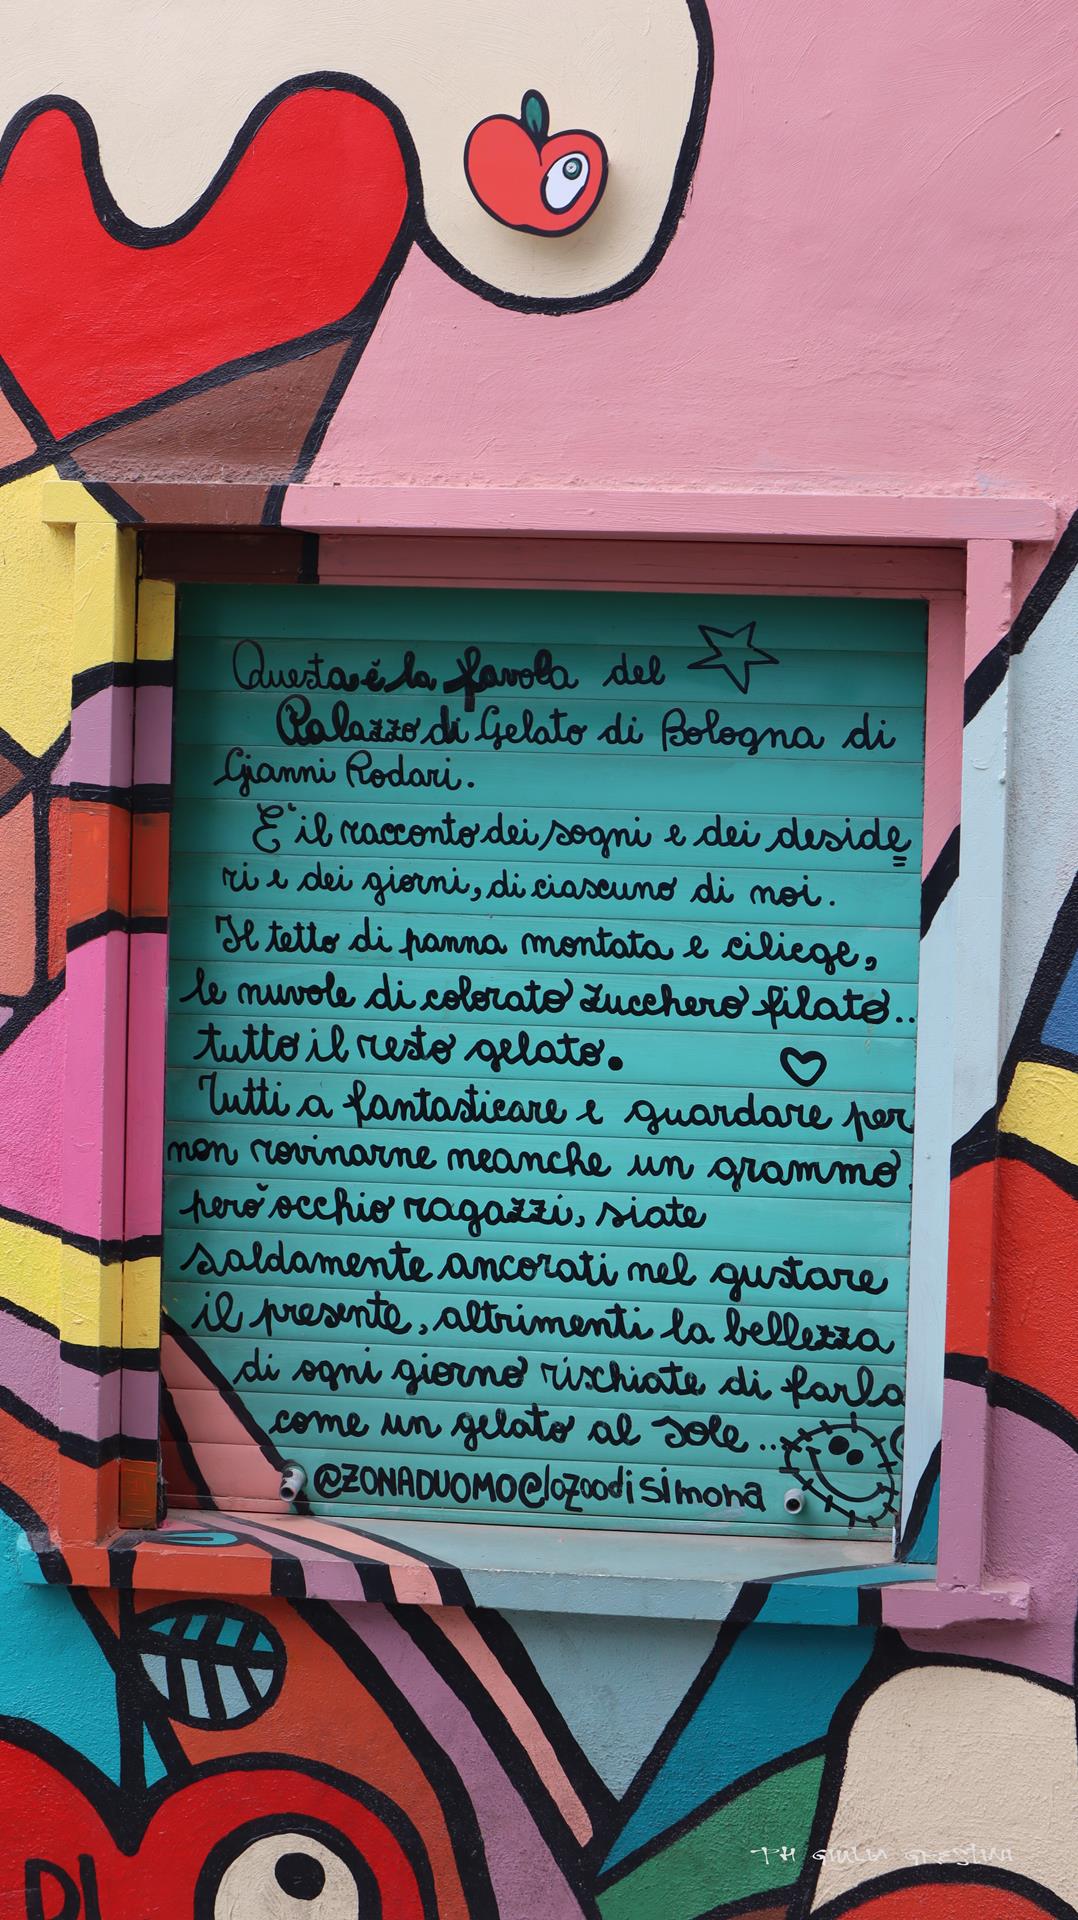 Questa è la favola del
Palazzo di Gelato di Bologna di
Gianni Rodari.
E' il racconto dei sogni e dei deside
ri e dei giorni, di ciascuno di noi.
Il tetto di panna montata e ciliege,
le nuvole di colorato zucchero filato..
tutto il resto gelato.
Tutti a fantasticare e guardare per
non rovinarne neanche un grammo
però occhio ragazzi, siate
saldamente ancorati nel gustare
il presente, altrimenti la bellezza
di ogni giorno rischiate di farla
come un gelato al sole...
@ZONADUOMO@lozoodisimona
DI
PH GIULIA